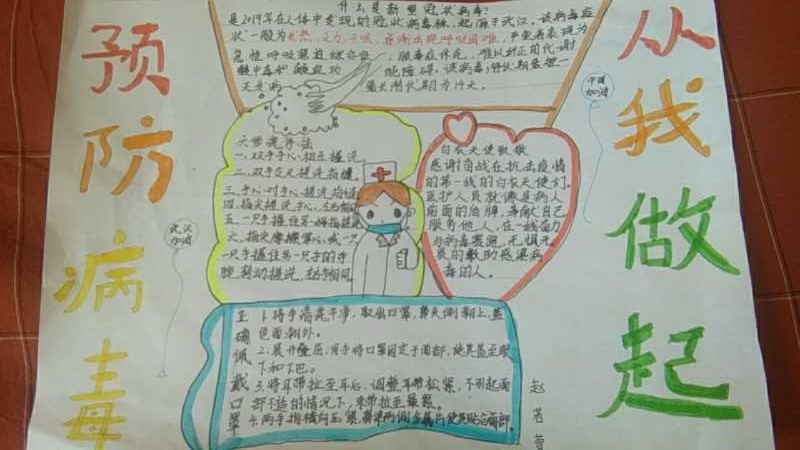 预防病毒
从我做起
什么是新型冠状病毒?
是2019年在人体中发现的冠状病毒株,起源于武汉。该病毒症
状一般为发热、乏力、干咳、逐渐出现呼吸困难,严重者表现为
急性呼吸窘迫综合征、脓毒症休克、难以纠正的代谢
酸中毒和凝血功能障碍。该病毒
最长潜伏期为14天。
中国
加油
武汉
加油
六步洗手法
一、双手手心相互搓洗
二、双手交叉搓洗指缝。
三、手心对手心搓洗指缝
四、指尖搓洗手心,左右相同
五、一只手握住另一只拇指搓洗
六、指尖摩擦掌心或一
只手握住另一只手的手
腕,转动搓洗,左右相同
白衣天使致敬
感谢奋战在抗击疫情
的第一线的白衣天使们。
医护人员就像是病人
前面的盾牌,奉献自己
服务他人,在一线奋力
与病毒赛跑,无惧无
畏的救助感染病
毒的人。
正确佩戴口罩
1.将手清洗干净,取出口罩,鼻夹侧朝上,蓝
色面朝外。
2.展开叠层,用手将口罩固定于面部,使其盖至眼
下和下巴。
3.将耳带拉至耳后,调整耳带松紧,不引起面
部不适的情况下,束带拉至最紧。
4.两手指横向压紧,鼻梁两侧金属片使其贴合面部。
赵若